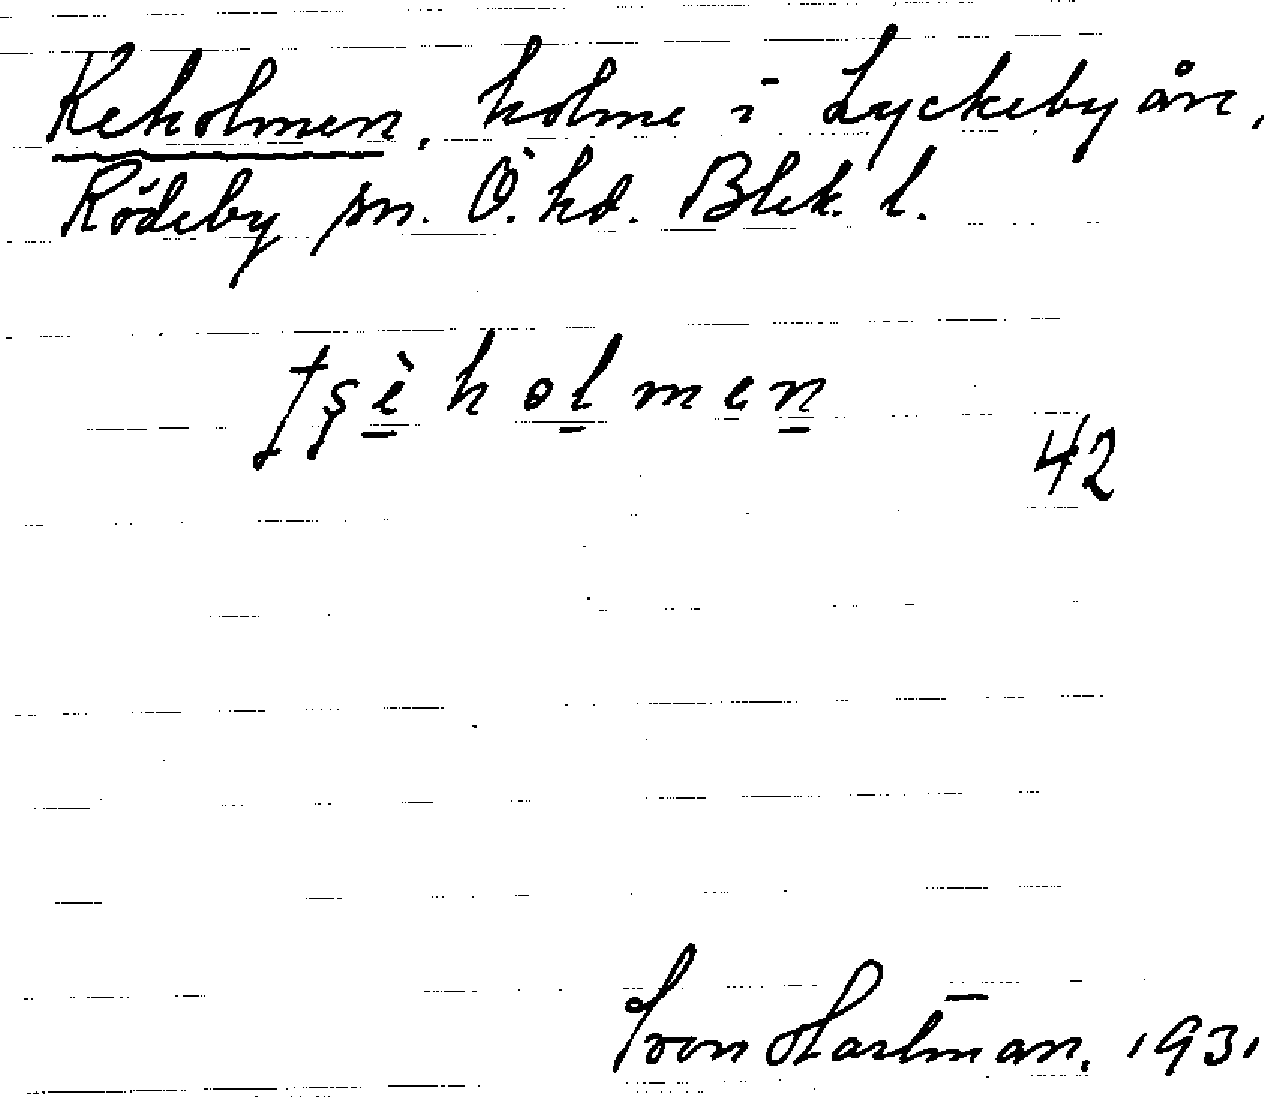 Keholmen, holme i Lyckebyån,
Rödeby sn. Ö. hd. Blek. l.
tʂèholmen
42
Ivon Hartman, 1931